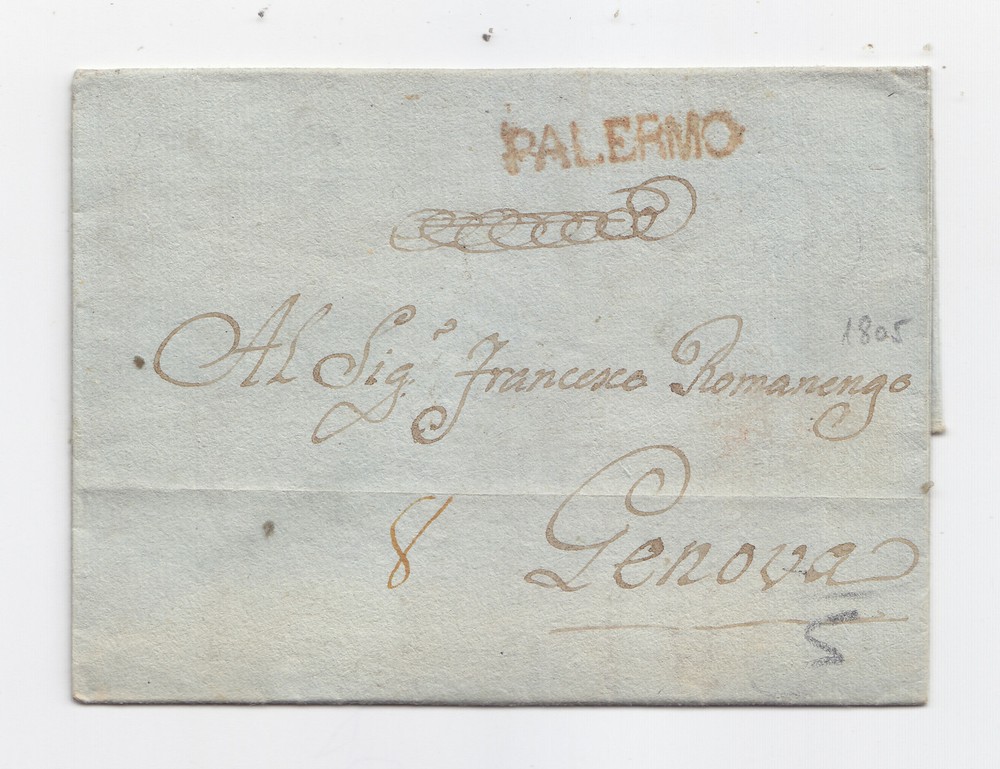 PALERMO
1805
Al Sig.º Francesco Romanengo
8 Genova